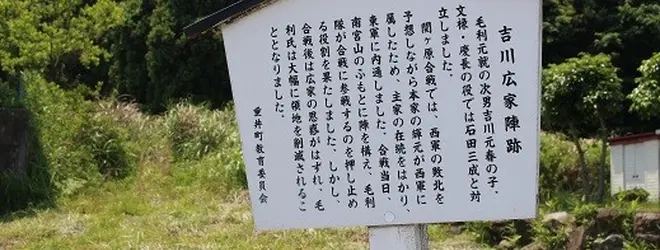 吉川広家陣跡
毛利元就の次男吉川元春の子。
文禄・慶長の役では石田三成と対
立しました。
関ヶ原合戦では、西軍の敗北を
予想しながら本家の輝元が西軍に
属したため、主家の存続をはかり、
東軍に内通しました。合戦当日、
南宮山のふもとに陣を構え、毛利
隊が合戦に参戦するのを押し止め
る役割を果たしました。しかし、
合戦後は広家の思惑がはずれ、毛
利氏は大幅に領地を削減されるこ
ととなりました。
垂井町教育委員会